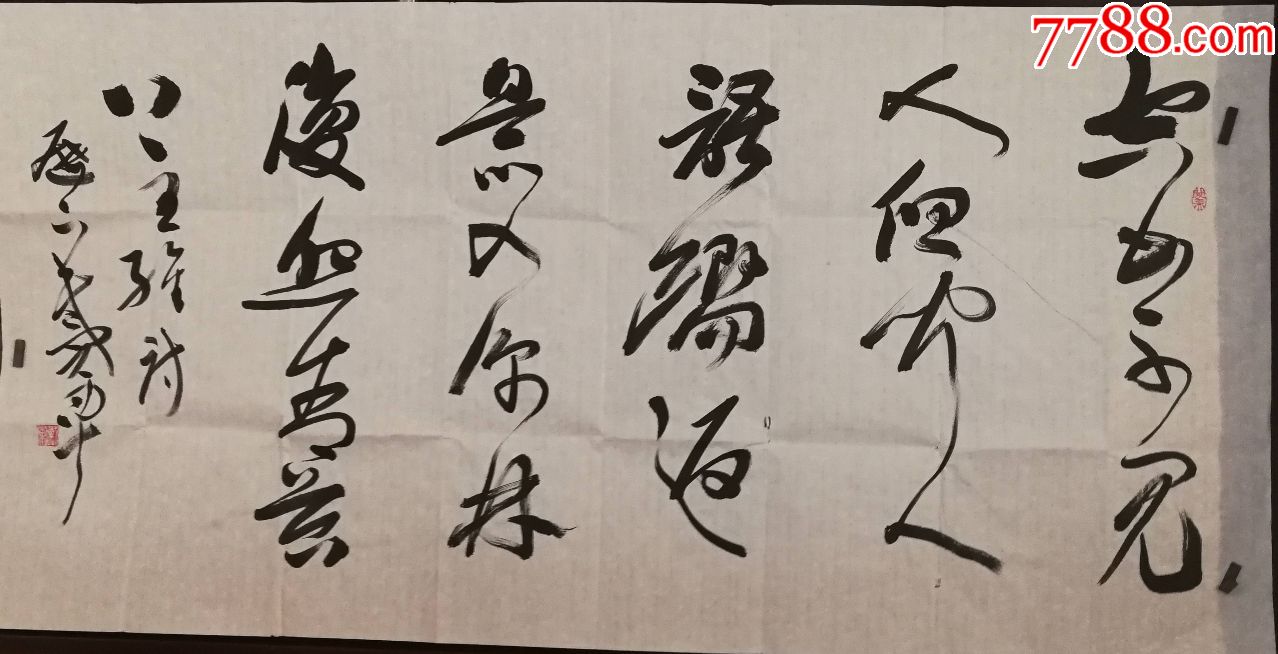 7788.com
空山不見
人但闻人
語響返
景入深林
復照青苔
上王維詩